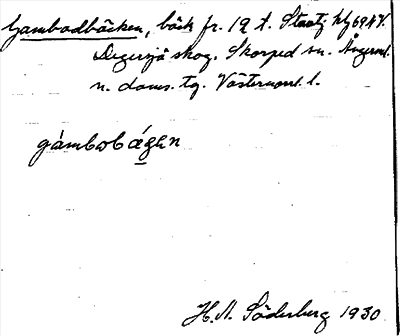 Gambodbäcken, bäck fr. 19 t. Staatz
Degersjö skog. Skorped sn. Ångerml.
n. doms. tg. Västernorrl. l.
gàmbobága̲n
H. A. Söderberg 1930